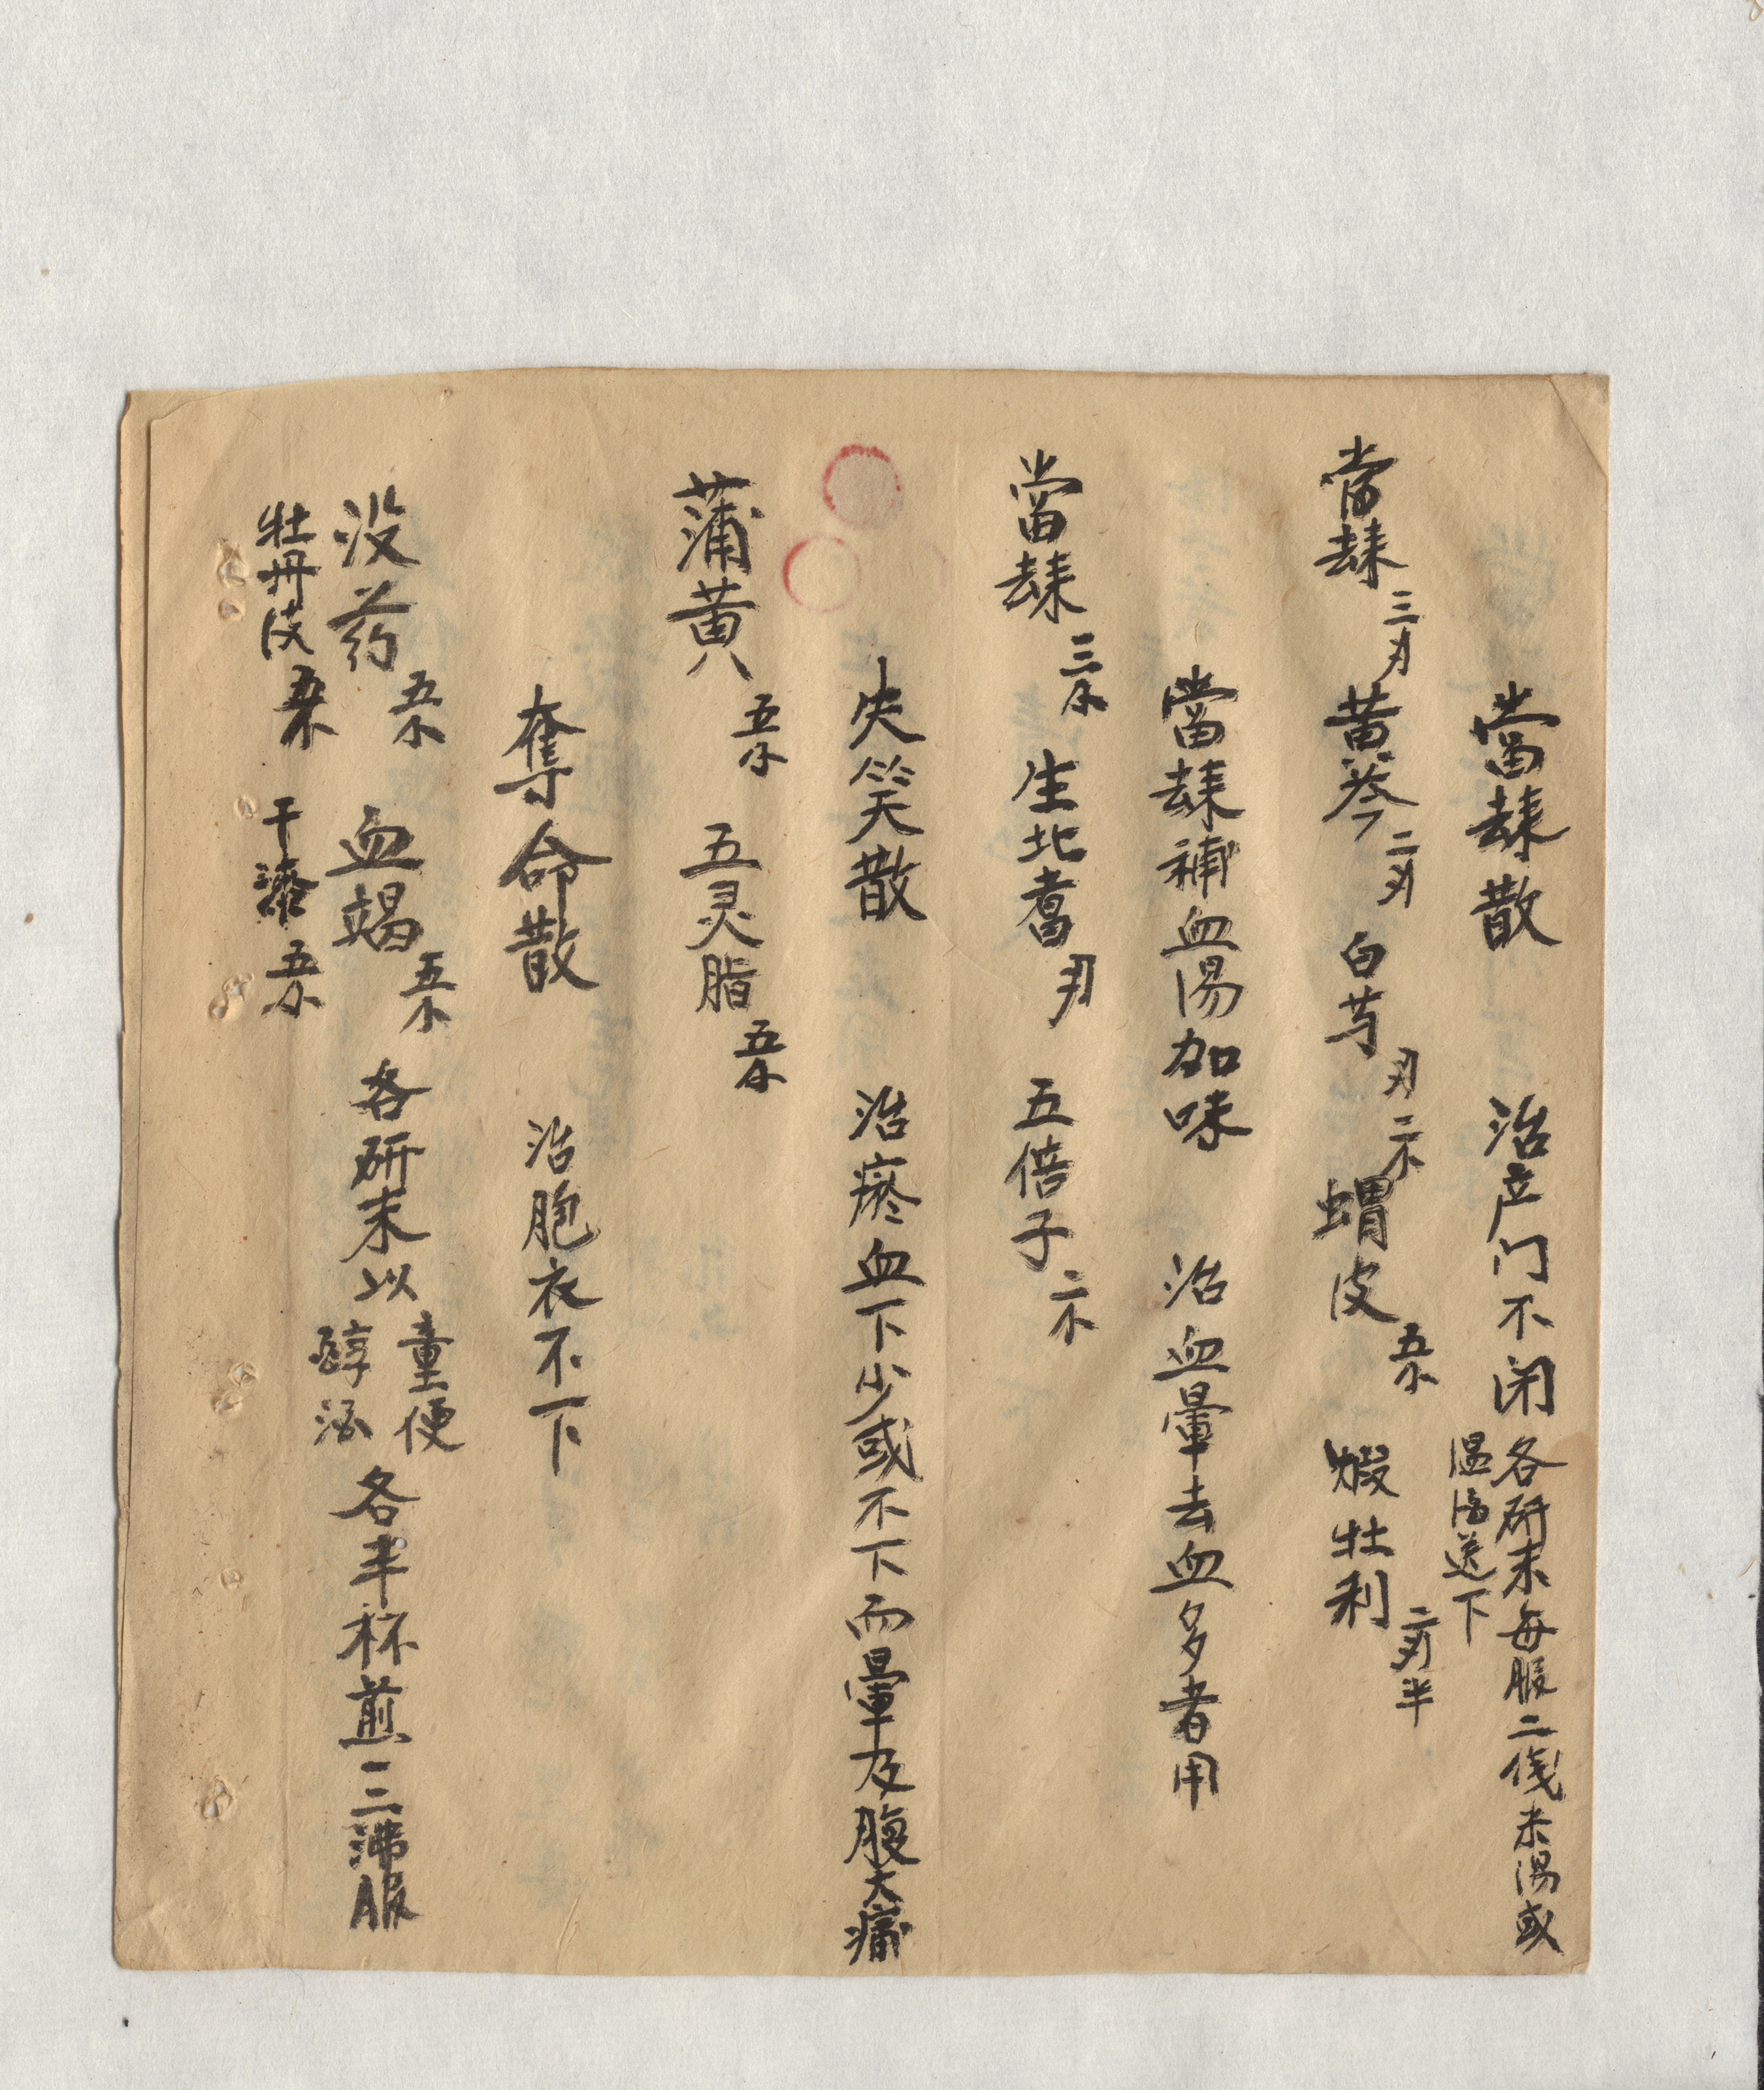 當歸散 治产门不闭 各研末每服二俴米湯或
温酒送下
當歸三刃 黄芩二刃 白芍刃二钱 蝟皮五钱 煅牡利二刃半
當歸補血湯加味 治血暈去血多者用
當歸三钱 生北耆刃 五倍子二钱
失笑散 治瘀血下少或不下而暈及腹大痛
蒲黄五钱 五灵脂五钱
奪命散 治胞衣不下
没药五钱 血竭五钱 各研末以童便醇酒各半杯煎二三沸服
牡丹皮五钱 干漆五钱